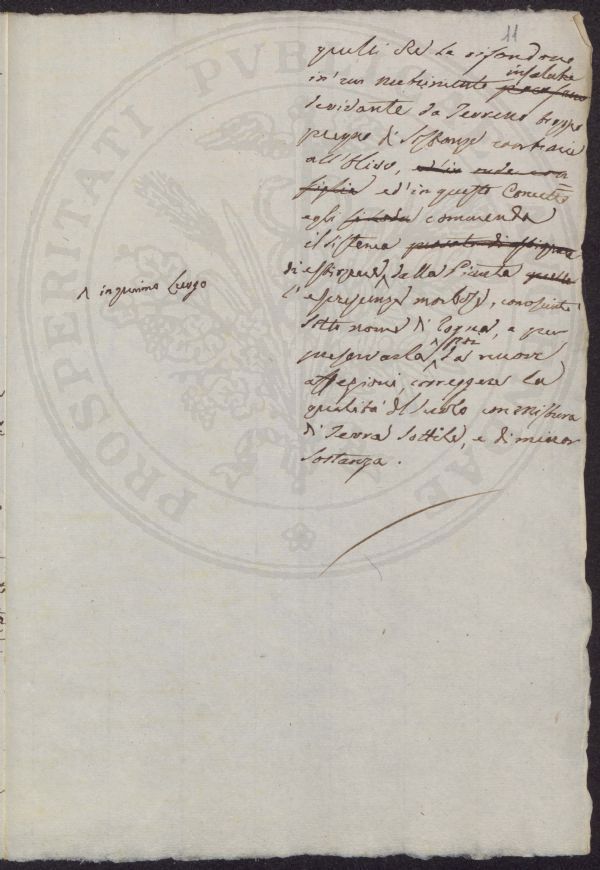 11
quelli che la rifondono
in' un nutrimento insalubre
derivante da Terreno troppo
pregno di Sostanze contrarie
all'Ulivo,
figlia ed' in questo
egli commenda
il sistema
di estirpare dalla Pianta
l'escrescenze morbose, conosciute
sotto nome di Rogna, e per
preservarla poi da nuove
affezioni, correggere la
qualità del suolo con mistura
di Terra sottile, e di minor
sostanza.
^ in primo Luogo
PROSPERITATI PUBLICAE